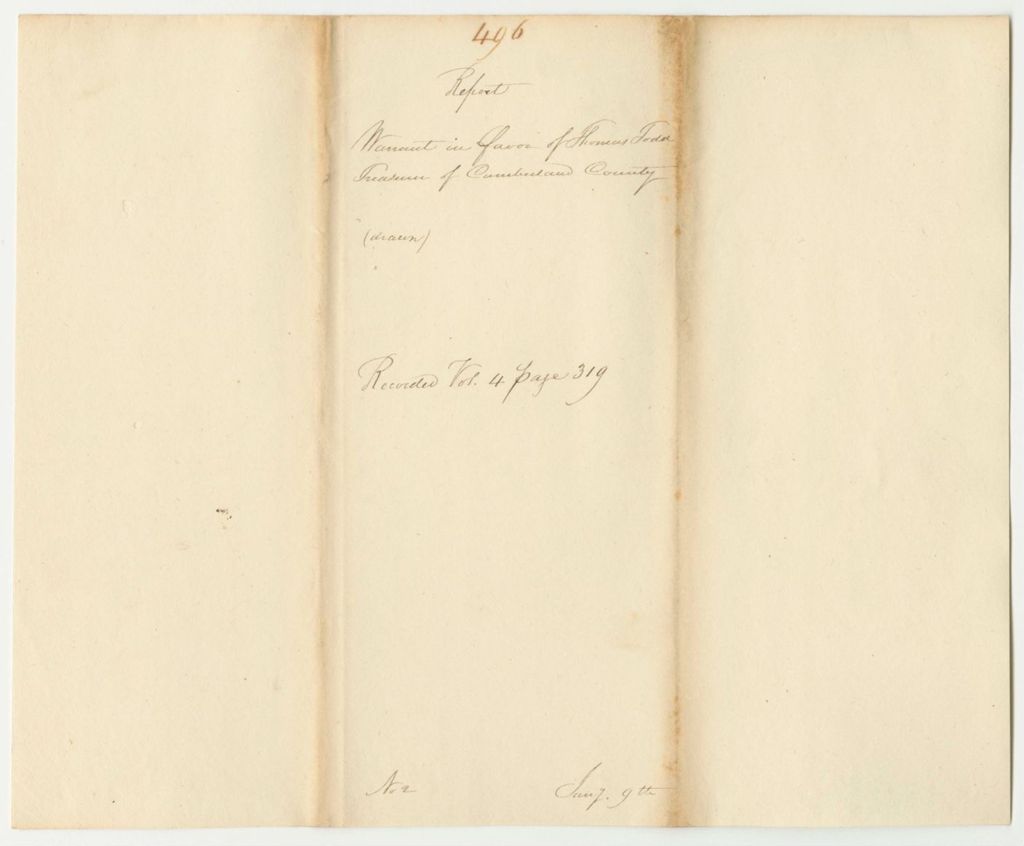 496
Report
Warrant in favor of Thomas Todd
Treasurer of Cumberland County
(drawn)
Recorded Vol. 4 page 319
No 2 Jany. 9th